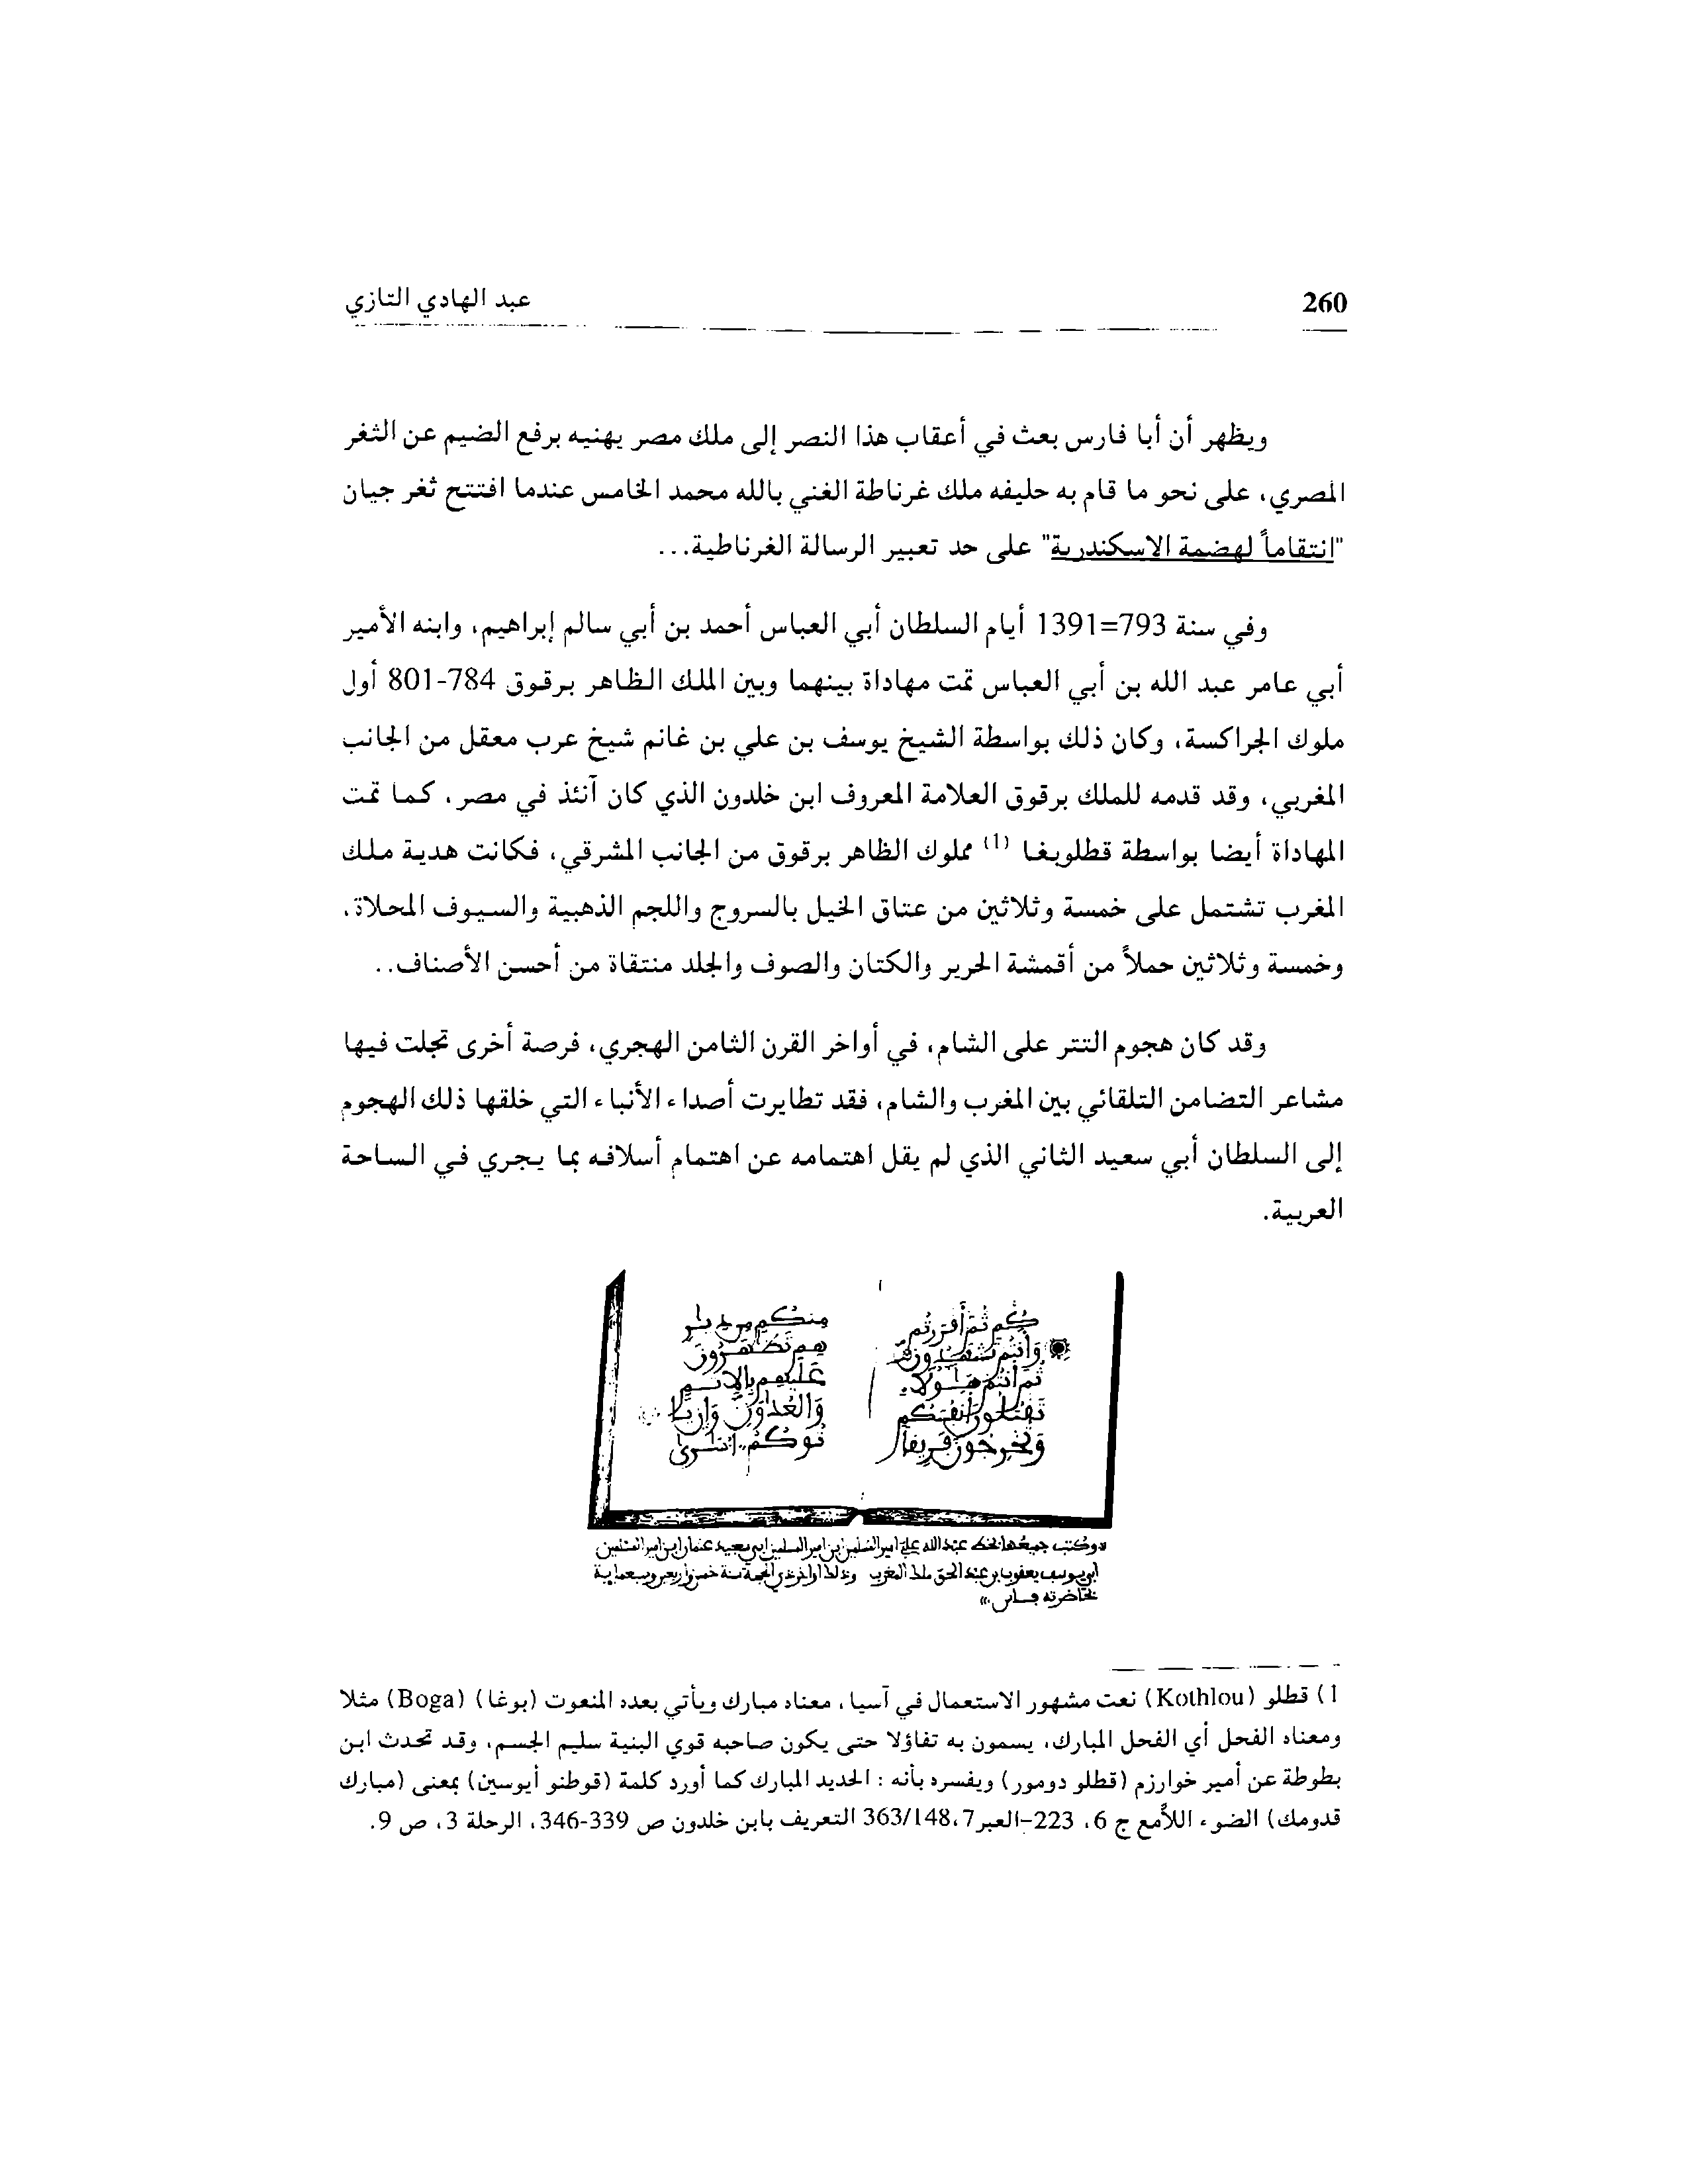 260
عبد الهادي التازي
ويظهر أن أبا فارس بعث في أعقاب هذا النصر إلى ملك مصر يهنيه برفع الضيم عن الثغر
المصري، على نحو ما قام به حليفه ملك غرناطة الغني بالله محمد الخامس عندما افتتح ثغر جيان
"انتقاماً لهضمة الاسكندرية" على حد تعبير الرسالة الغرناطية...
وفي سنة 793=1391 أيام السلطان أبي العباس أحمد بن أبي سالم إبراهيم، وابنه الأمير
أبي عامر عبد الله بن أبي العباس تمت مهاداة بينهما وبين الملك الظاهر برقوق 784-801 أول
ملوك الجراكسة، وكان ذلك بواسطة الشيخ يوسف بن علي بن غانم شيخ عرب معقل من الجانب
المغربي، وقد قدمه للملك برقوق العلامة المعروف ابن خلدون الذي كان آنئذ في مصر، كما تمت
المهاداة أيضا بواسطة قطلوبغا (1) مملوك الظاهر برقوق من الجانب المشرقي، فكانت هدية ملك
المغرب تشتمل على خمسة وثلاثين من عتاق الخيل بالسروج واللجم الذهبية والسيوف المحلاة،
وخمسة وثلاثين حملاً من أقمشة الحرير والكتان والصوف والجلد منتقاة من أحسن الأصناف..
وقد كان هجوم التتر على الشام، في أواخر القرن الثامن الهجري، فرصة أخرى تجلت فيها
مشاعر التضامن التلقائي بين المغرب والشام، فقد تطايرت أصداء الأنباء التي خلقها ذلك الهجوم
إلى السلطان أبي سعيد الثاني الذي لم يقل اهتمامه عن اهتمام أسلافه بما يجري في الساحة
العربية.
كُم ثُمَّ أَقْرَرْتُم
وَأَنتُمْ تَشْهَدُونَ
ثُمَّ أَنتُمْ هَٰؤُلَاءِ
تَقْتُلُونَ أَنفُسَكُمْ
وَتُخْرِجُونَ فَرِيقاً
مِنكُم مِن دِيَارِ
هِمْ تَظَّهَرُونَ
عَلَيْهِم بِالإِثْمِ
وَالْعُدْوَانِ وَإِن يَا
تُوكُمْ أُسَارَى
وكتب جميعها بخطه عبد الله علي امير المسلمين بن امير المسلمين ابي سعيد عثمان ابن امير المسلمين
ابي يوسف يعقوب بن عبد الحق ملك المغرب وذلك اواخر ذي الحجة سنة خمس واربعين وسبعماية
بحاضرته فاس.»
1) قطلو (Kothlou) نعت مشهور الاستعمال في آسيا، معناه مبارك ويأتي بعده المنعوت (بوغا) (Boga) مثلا
ومعناه الفحل أي الفحل المبارك، يسمون به تفاؤلا حتى يكون صاحبه قوي البنية سليم الجسم، وقد تحدث ابن
بطوطة عن أمير خوارزم (قطلو دومور) ويفسره بأنه : الحديد المبارك كما أورد كلمة (قوطنو أيوسين) بمعنى (مبارك
قدومك) الضوء اللأمع ج 6، 223-العبر7، 363/148 التعريف بابن خلدون ص 339-346، الرحلة 3، ص 9.